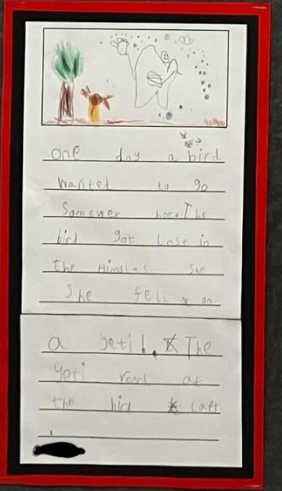 one day a bird
wanted to go
Somewer The
bird got Lost in
the Himalas So
She fell on
a yeti! The
yeti at
the bird Laft